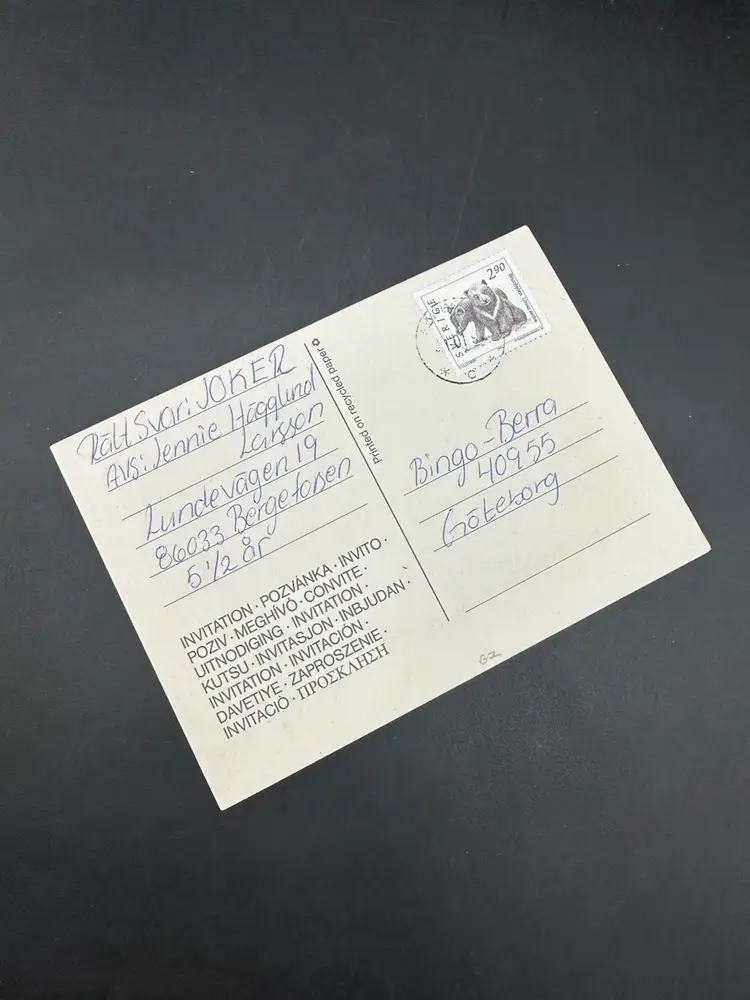 Rätt Svar: JOKER
Avs: Jennie Hägglund
Larsson
Lundevägen 19
86033 Bergeforsen
5 1/2 år
INVITATION · POZVÁNKA · INVITO ·
POZIV · MEGHÍVÓ · CONVITE ·
UITNODIGING · INVITATION ·
KUTSU · INVITASJON · INBJUDAN ·
INVITATION · INVITACIÓN ·
DAVETIYE · ZAPROSZENIE ·
INVITACIÓ · ΠΡΟΣΚΛΗΣΗ
Printed on recycled paper
SVERIGE
2.90
Bingo-Berra
40955
Göteborg
GZ